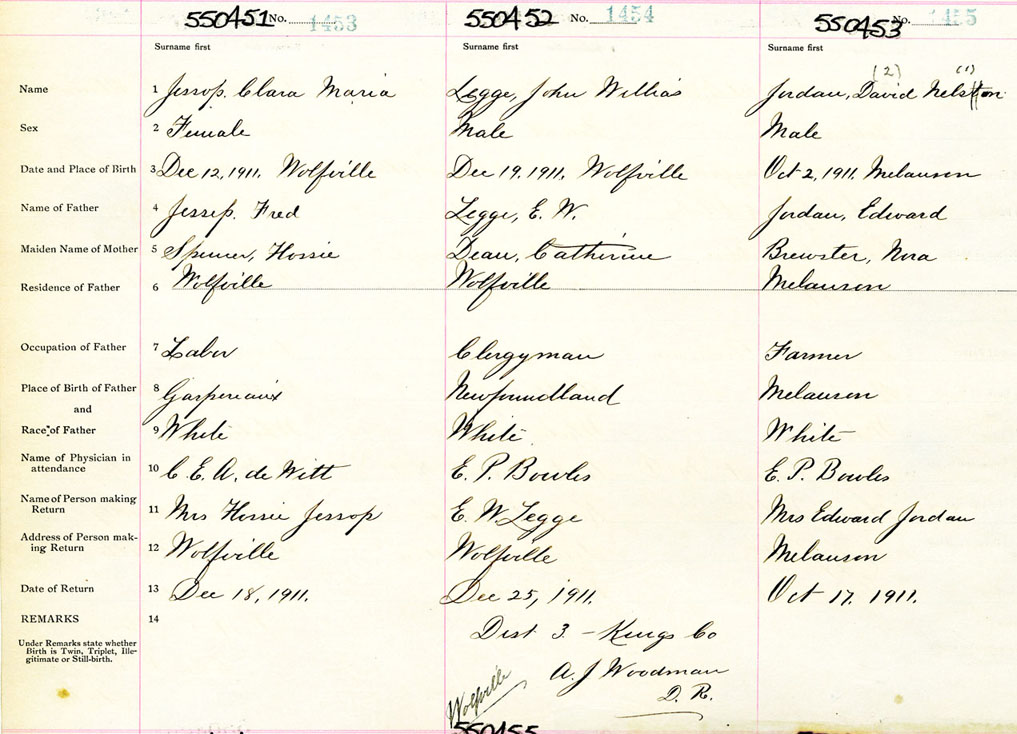 550451 No. 1453 550452 No. 1454 550453 No. 1455
Surname first Surname first Surname first
(2) (1)
Name 1 Jessop, Clara Maria Legge, John Willias Jordan, David
Sex 2 Female Male Male
Date and Place of Birth 3 Dec 12, 1911. Wolfville Dec 19. 1911. Wolfville Oct 2, 1911. Melanson
Name of Father 4 Jessop. Fred Legge, E. W. Jordan, Edward
Maiden Name of Mother 5 Dean, Catherine Brewster, Nora
Residence of Father 6 Wolfville Wolfville Melanson
Occupation of Father 7 Labor Clergyman Farmer
Place of Birth of Father 8 Gaspereaux Newfoundland Melanson
and
Race of Father 9 White White White
Name of Physician in
attendance 10 C. E. A. de Witt E. P. Bowles E. P. Bowles
Name of Person making
Return 11 Mrs Jessop E. W. Legge Mrs Edward Jordan
Address of Person mak-
ing Return 12 Wolfville Wolfville Melanson
Date of Return 13 Dec 18, 1911. Dec 25, 1911. Oct 17. 1911.
REMARKS 14
Dist 3. - Kings Co
Under Remarks state whether
Birth is Twin, Triplet, Ille-
gitimate or Still-birth.
A. J Woodman
D. R.
Wolfville
550455